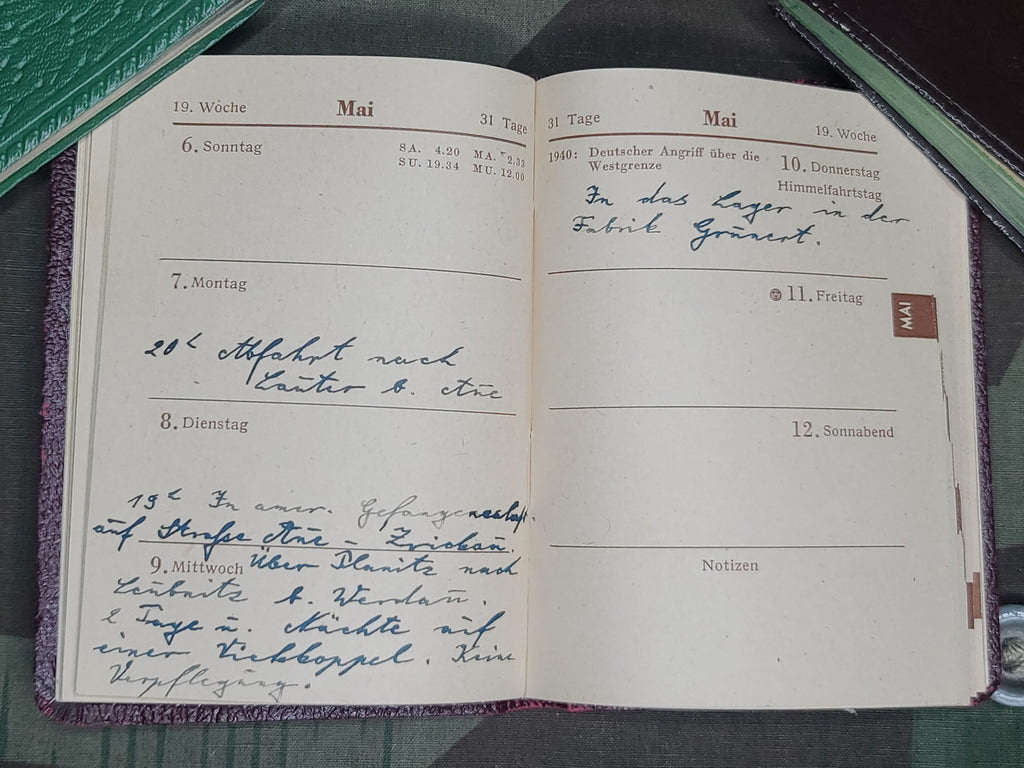 19. Woche Mai 31 Tage
6. Sonntag
SA. 4.20 MA. 2.33
SU. 19.34 MU. 12.00
7. Montag
20ʰ Abfahrt nach
Lauter b. Aue
8. Dienstag
19ʰ In amer. Gefangenschaft
auf Straße Aue - Zwickau.
9. Mittwoch Über Planitz nach
Leubnitz b. Werdau.
2 Tage u. Nächte auf
einer Viehkoppel. Keine
Verpflegung.
31 Tage Mai 19. Woche
1940: Deutscher Angriff über die
Westgrenze
10. Donnerstag
Himmelfahrtstag
In das Lager in der
Fabrik Grünert.
11. Freitag
MAI
12. Sonnabend
Notizen